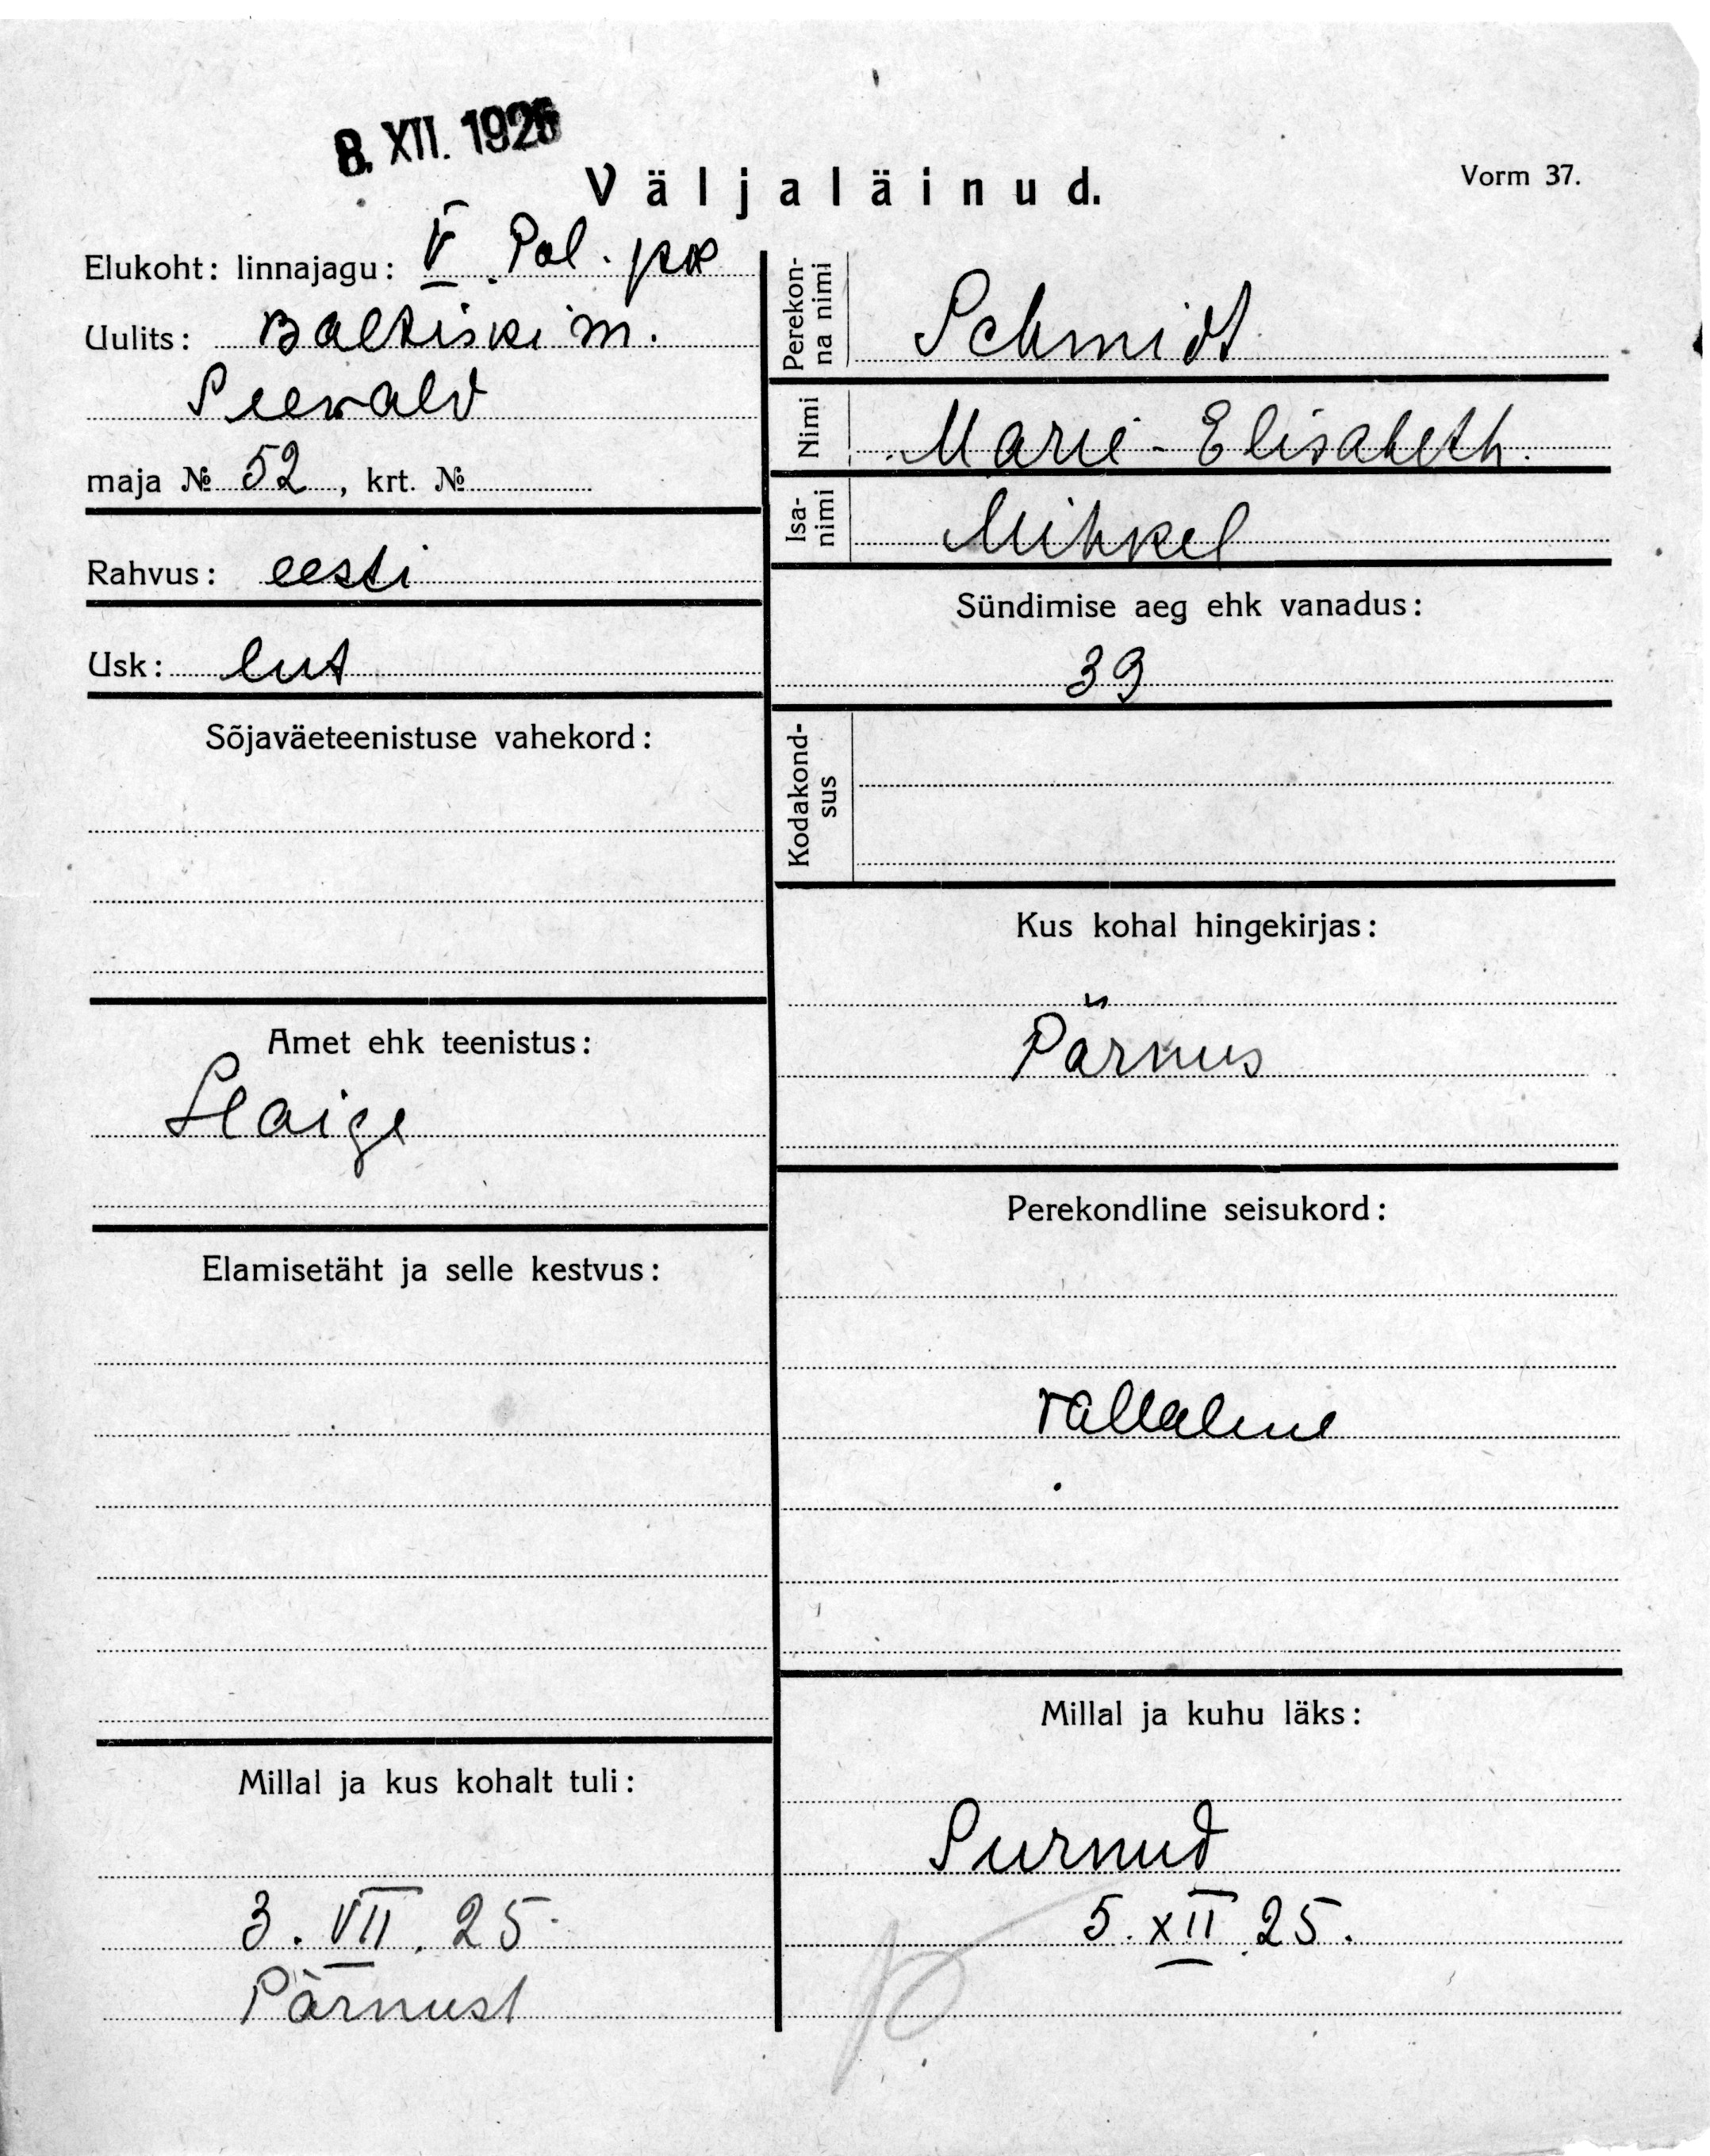 8. XII. 1925
Väljaläinud.
Vorm 37.
Elukoht: linnajagu: V Pol. jsk
Uulits: Baltiski m.
Seewald
maja № 52, krt. №
Rahvus: eesti
Usk: lut
Sõjaväeteenistuse vahekord:
Amet ehk teenistus:
Haige
Elamisetäht ja selle kestvus:
Millal ja kus kohalt tuli:
3. VII. 25
Pärnust
Perekon-
na nimi
Schmidt
Nimi
Marie-Elisabeth.
Isa-
nimi
Mihkel
Sündimise aeg ehk vanadus:
39
Kodakond-
sus
Kus kohal hingekirjas:
Pärnus
Perekondline seisukord:
vallaline
Millal ja kuhu läks:
Surnud
5. XII. 25.